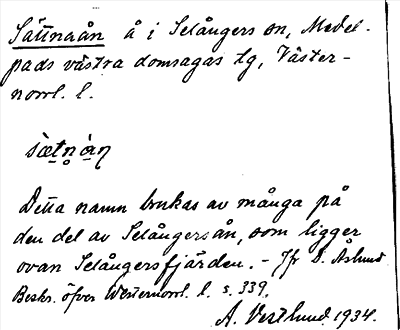 Sättnaån å i Selångers sn, Medel-
pads västra domsagas tg, Väster-
norrl. l.
sæ̀tnòạn
Detta namn brukas av många på
den del av Selångersån, som ligger
ovan Selångersfjärden. - Jfr D. Åslund
Beskr. öfver Westernorrl. l. s. 339.
A. Vestlund 1934.